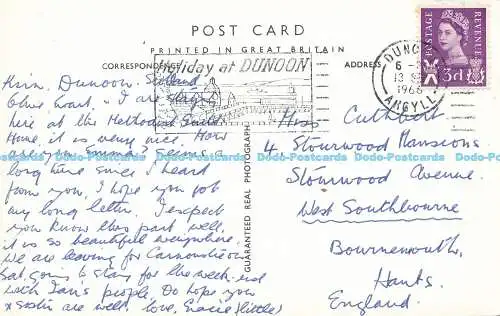 POST CARD
PRINTED IN GREAT BRITAIN
CORRESPONDENCE
ADDRESS
Holiday at DUNOON
POSTAGE
REVENUE
3d
DUNOON
13 SE
1966
ARGYLL
GUARANTEED REAL PHOTOGRAPH
Kirn, Dunoon, Scotland
I are staying
here at the Methodist Guild
Home, it is very nice. How
are you. Seems a
long time since I heard
from you, I hope you got
my long letter. I expect
you know this part well,
it is so beautiful everywhere.
We are leaving for Carnoustie on
Sat. going to stay for the week-end
with Ian's people. Do hope you
x sister are well. Love, Gracie (Little)
Miss Cuthbert
4 Stourwood Mansions
Stourwood Avenue.
West Southbourne
Bournemouth,
Hants.
England.
Dodo-Postcards Dodo-Postcards Dodo-Postcards Dodo-Postcards Dodo-Postcards Dodo-Postcards